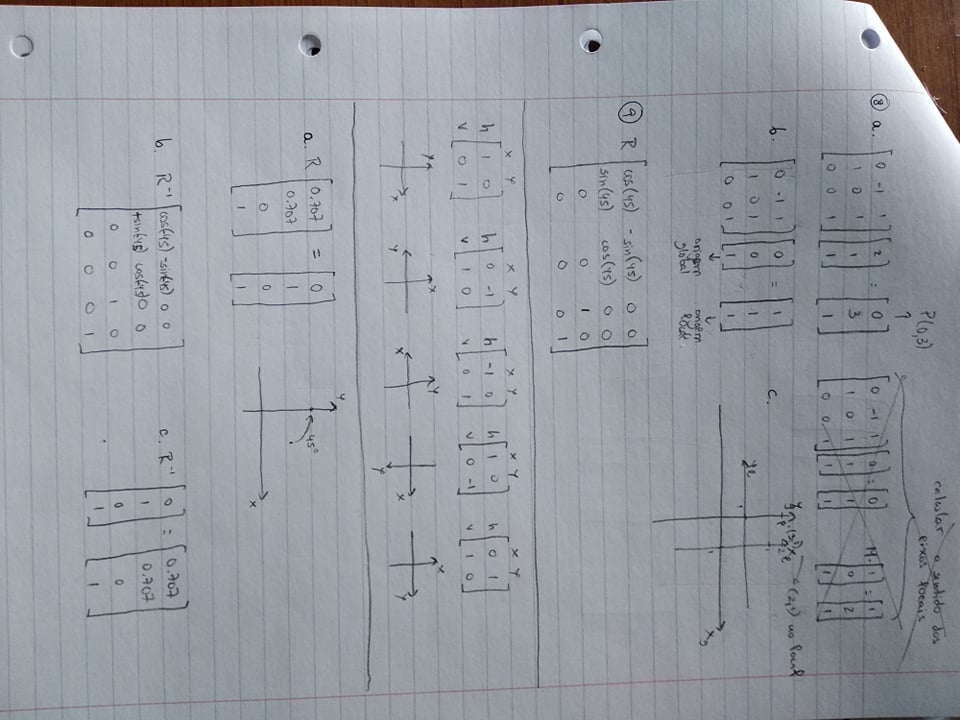 P(0,3)
calcular o sentido dos
eixos locais
⑧ a. [0 -1 1] [2] = [0]
[1 0 1] [1] [3]
[0 0 1] [1] [1]
[0 -1 1] [0] = [0]
[1 0 1] [1] [1]
[0 0 1] [1] [1]
M. [1] = [1]
[0] [2]
[1] [1]
b. [0 -1 1] [0] = [1]
[1 0 1] [0] [1]
[0 0 1] [1] [1]
origem
global
origem
local
c.
(2,1) no local
yl
xg
⑨ R [cos(45) -sin(45) 0 0]
[sin(45) cos(45) 0 0]
[0 0 1 0]
[0 0 0 1]
x y
h [1 0]
v [0 1]
x y
h [0 -1]
v [1 0]
x y
h [-1 0]
v [0 1]
x y
h [1 0]
v [0 -1]
x y
h [0 1]
v [1 0]
y x
x y
y x
x y
x y
a. R [0.707] = [0]
[0.707] [1]
[0] [0]
[1] [1]
y
45°
x
b. R⁻¹ [cos(-45) -sin(-45) 0 0]
[+sin(-45) cos(-45) 0 0]
[0 0 1 0]
[0 0 0 1]
c. R⁻¹ [0] = [0.707]
[1] [0.707]
[0] [0]
[1] [1]